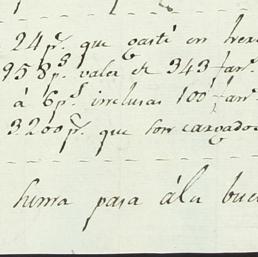 24 p.s que gasté en
958 p.s valor de 343 fan.s
à 6 p.s inclusas 100 fan.s
3.200 p.s que son cargados
suma pasa à la bue